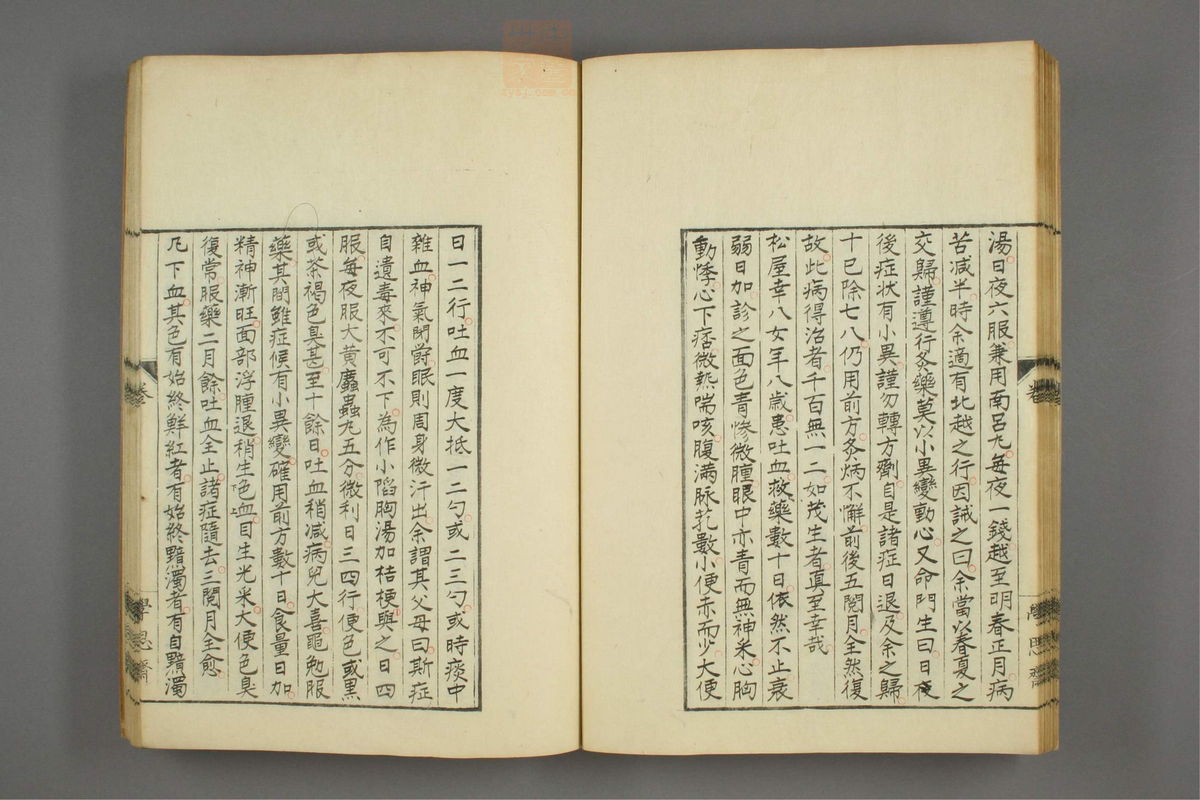 湯日夜六服兼用南呂丸每夜一錢越至明春正月病
苦減半時余適有北越之行因誡之曰余當以春夏之
交歸謹遵行灸藥莫以小異變動心又命門生曰日夜
後症狀有小異謹勿轉方劑自是諸症日退及余之歸
十已除七八仍用前方灸炳不懈前後五閱月全然復
故此病得治者千百無一二如茂生者真至幸哉
松屋幸八女年八歲患吐血救藥數十日依然不止衰
弱日加診之面色青慘微腫眼中亦青而無神釆心胸
動悸心下痞微熱喘咳腹滿脉芤數小便赤而少大便
日一二行吐血一度大抵一二勺或二三勺或時痰中
雜血神氣閉欝眠則周身微汗出余謂其父母曰斯症
自遺毒來不可不下為作小陷胸湯加桔梗與之日四
服每夜服大黄䗪蟲丸五分微利日三四行便色或黒
或茶褐色臭甚至十餘日吐血稍减病兒大喜黽勉服
藥其間雖症候有小異變確用前方數十日食量日加
精神漸旺面部浮腫退稍生色血目生光釆大便色臭
復常服藥二月餘吐血全止諸症隨去三閱月全愈
凡下血其色有始終鮮紅者有始終黯濁者有自黯濁
卷
學思齋
卷
學思齋
八